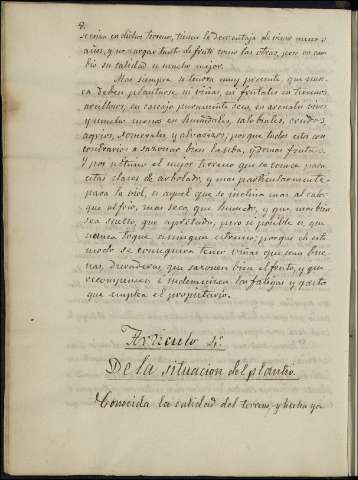 8.
se crian en dichos terrenos, tienen la desventaja de vivir menos
años, y no cargar tanto de fruto como las otras, pero en cam-
bio su calidad es mucho mejor.
Mas siempre se tendra muy presente que nun-
ca deben plantarse ni viñas, ni frutales en terrenos
arcillosos, en cascajo puramente seco, en arenales vivos
y mucho menos en humedales, salobrales, crudos,
agrios, y porque todos estos son
contrarios a sazonar bien la uba, y demas frutas.
Y por ultimo el mejor terreno que se conoce para
estas clases de arbolado, y mas particularmente
para la vid, es aquel que se inclina mas al calor
que al frio, mas seco que humedo, y que mas bien
sea suelto, que apretado, pero si posible es, que
nunca toque a ningun estremo; porque de este
modo se conseguira tener viñas que sean bue-
nas, duraderas, que sazonen bien el fruto, y que
recompensen e indemnicen las fatigas y gasto
que emplea el propietario.
Articulo 4º
De la situacion del plantio.
Conocida la calidad del terreno, y hecha ya